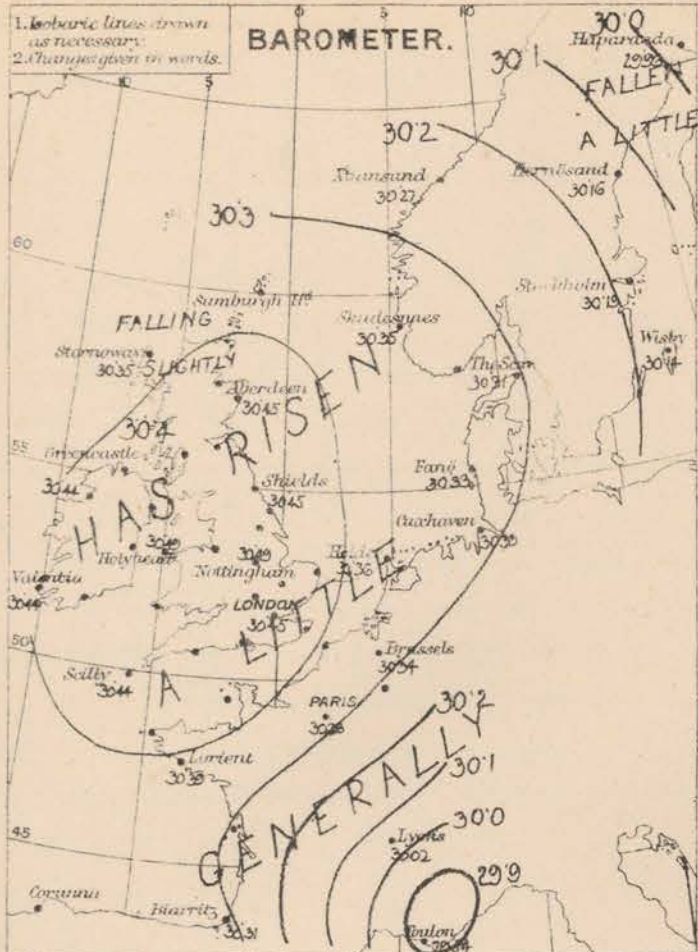 1. Isobaric lines drawn
as necessary.
2. Changes given in words.
BAROMETER.
10
5
10
30·0
Haparanda
29.98
30·1
FALLEN
A LITTLE
30·2
Xtiansand
30·27
Hernösand
30·16
30·3
60
Sumburgh Hd
Stockholm
30·19
FALLING
SLIGHTLY
Skudesnes
30·35
Wisby
30·14
Stornoway
30·35
The Scaw
30·31
Aberdeen
30·45
30·4
HAS RISEN
55
Greencastle
30·44
Shields
30·45
Fanö
30·33
Cuxhaven
Holyhead
30·49
Nottingham
Helder
30·36
Valentia
30·44
LONDON
30·45
A LITTLE
50
Brussels
30·34
Scilly
30·44
PARIS
30·2
Lorient
GENERALLY
30·1
30·0
45
Lyons
30·02
29·9
Corunna
Biarritz
30·31
Toulon